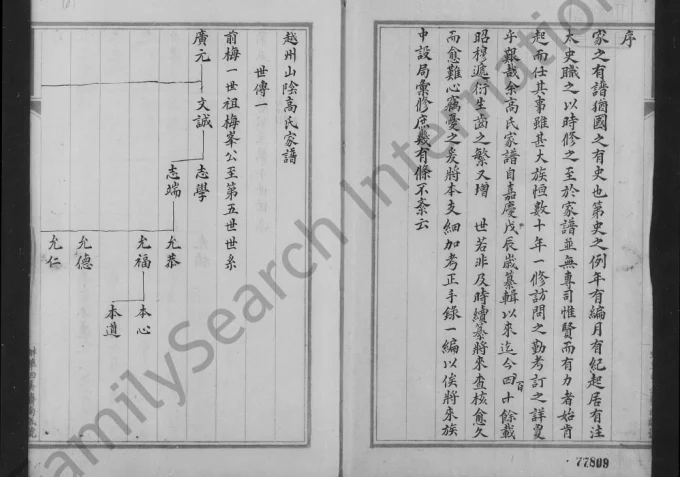 序
家之有譜猶國之有史也第史之例年有編月有紀起居有注
大史職之以時修之至於家譜並無專司惟賢而有力者始肯
起而任其事雖甚大族恒數十年一修訪問之勤考訂之詳戛
乎艱哉余高氏家譜自嘉慶戊辰歲纂輯以來迄今四十餘載
百
昭穆遞衍生齒之繁又增 世若非及時續纂將來查核愈久
而愈難心竊憂之爰將本支細加考正手錄一編以俟將來族
中設局彙修庶幾有條不紊云
越州山陰高氏家譜
世傳一
前梅一世祖梅峯公至第五世世系
廣元
文誠
志學
志端
允恭
允福
允德
允仁
本心
本道
77809
FamilySearch International